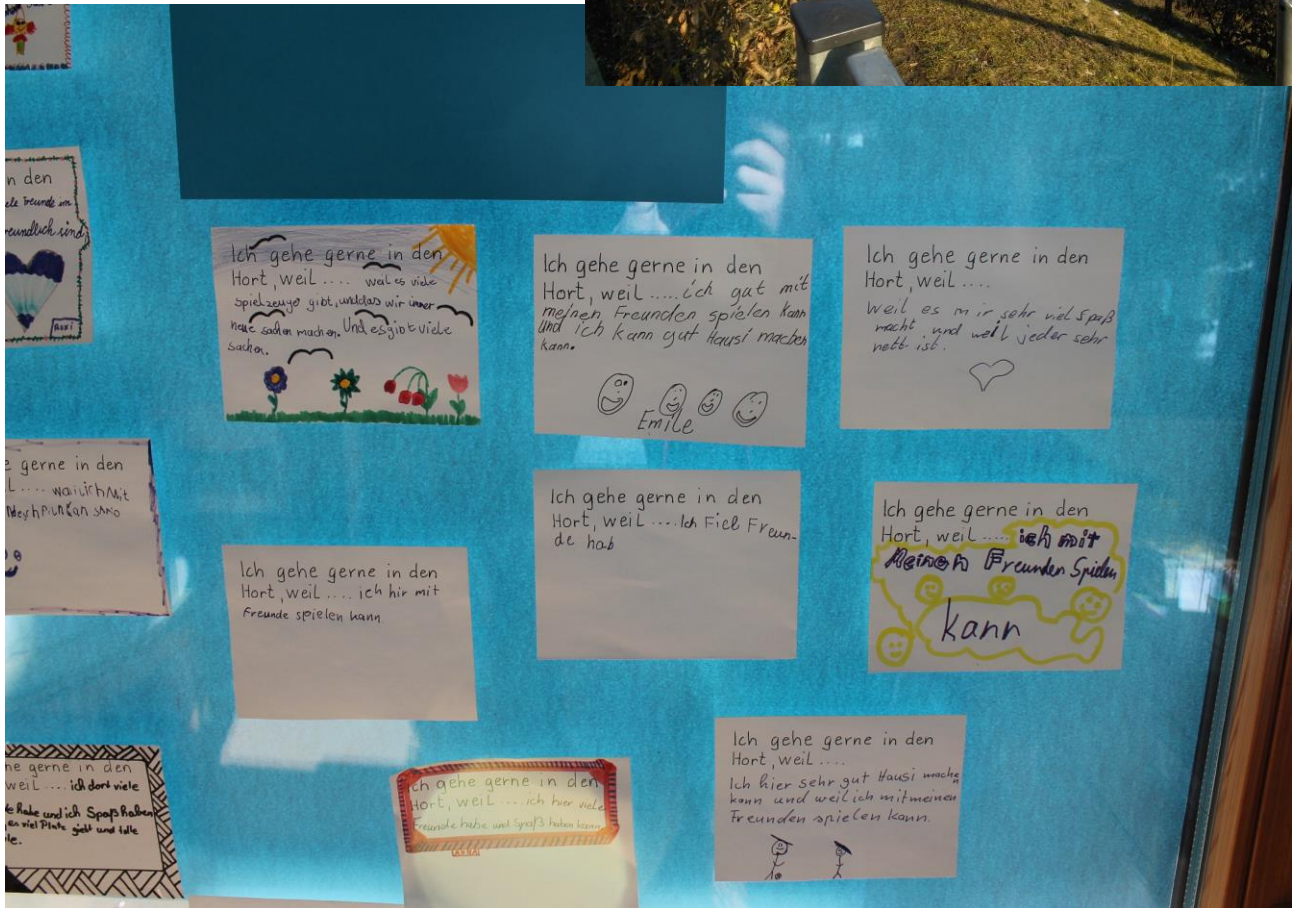 n den
ele Freunde im
reundlich sind
Roxi
Ich gehe gerne in den
Hort, weil .... weil es viele
spielzeuge gibt, und das wir immer
neue sachen machen. Und es gibt viele
sachen.
Ich gehe gerne in den
Hort, weil .... ich gut mit
meinen Freunden spielen kann
und ich kann gut Hausi machen
kann.
Emile
Ich gehe gerne in den
Hort, weil ....
Weil es mir sehr viel Spaß
macht, und weil jeder sehr
nett ist.
e gerne in den
L .... wailich Mit
Ich gehe gerne in den
Hort, weil .... ich hir mit
Freunde spielen kann
Ich gehe gerne in den
Hort, weil .... Ich Fiel Freun-
de hab
Ich gehe gerne in den
Hort, weil .... ich mit
Meinen Freunden Spielen
kann
he gerne in den
weil .... ich dort viele
e habe und ich Spaß haben
es viel Platz giebt und tolle
le.
Ich gehe gerne in den
Hort, weil .... ich hier viele
Freunde habe und Spaß haben kann
Ich gehe gerne in den
Hort, weil ....
Ich hier sehr gut Hausi machen
kann und weil ich mit meinen
Freunden spielen kann.